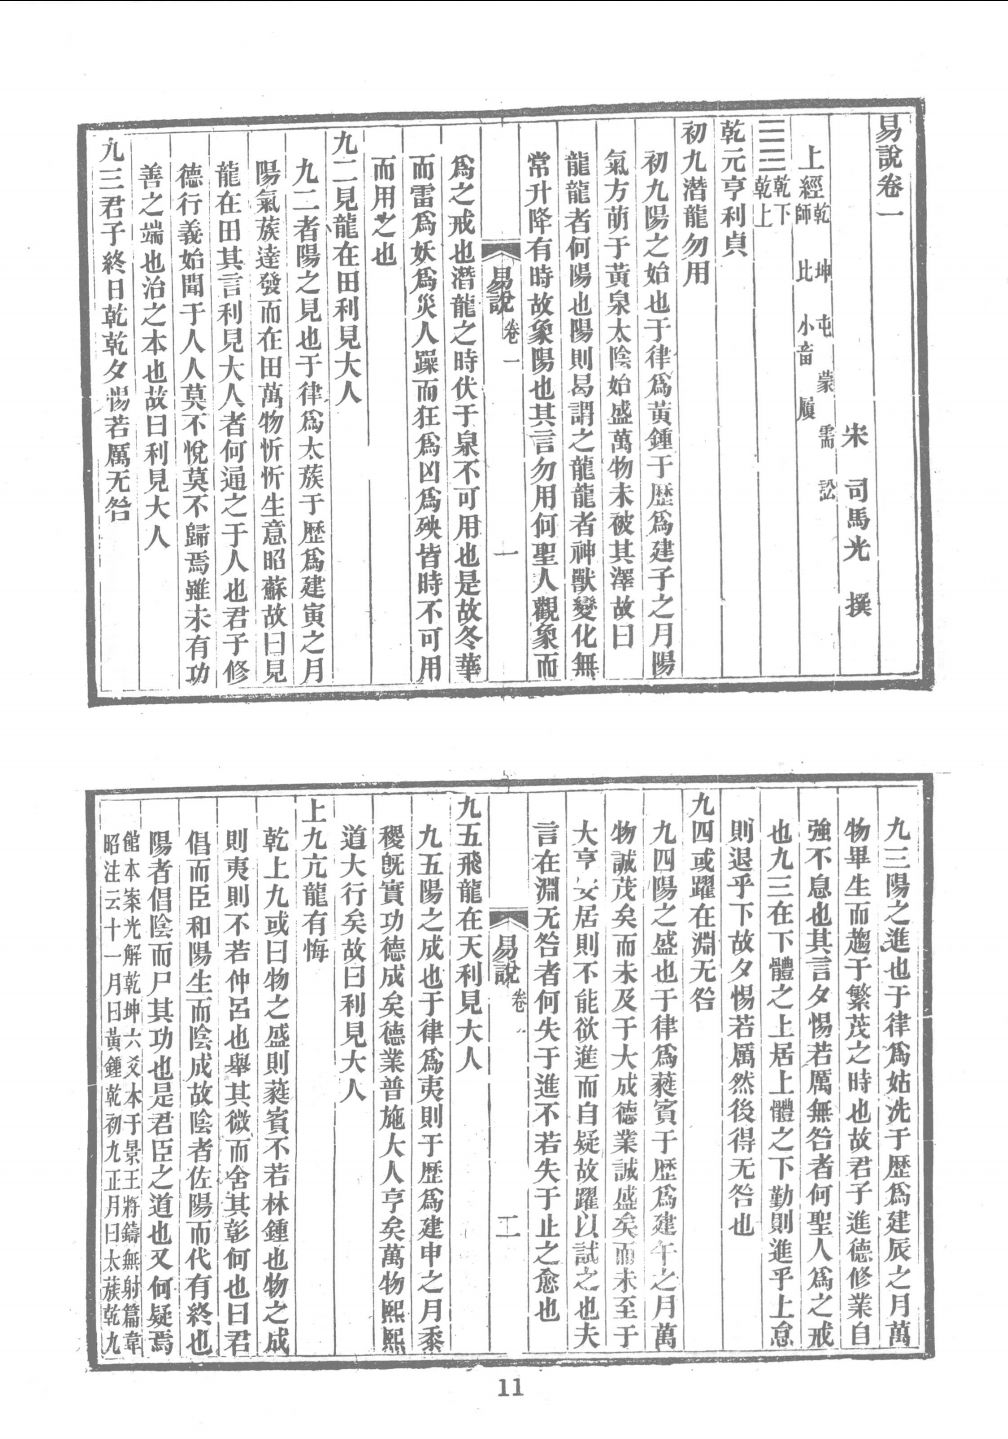 易說卷一
宋 司馬光 撰
上經乾 坤 屯 蒙 需 訟
師 比 小畜 履
䷀乾下
乾上
乾元亨利貞
初九潛龍勿用
初九陽之始也于律爲黃鍾于歷爲建子之月陽
氣方萌于黃泉太陰始盛萬物未被其澤故曰
龍龍者何陽也陽則曷謂之龍龍者神獸變化無
常升降有時故象陽也其言勿用何聖人觀象而
易說 卷一 一
爲之戒也潛龍之時伏于泉不可用也是故冬華
而雷爲妖爲災人躁而狂爲凶爲殃皆時不可用
而用之也
九二見龍在田利見大人
九二者陽之見也于律爲太蔟于歷爲建寅之月
陽氣蔟達發而在田萬物忻忻生意昭蘇故曰見
龍在田其言利見大人者何通之于人也君子修
德行義始聞于人人莫不悅莫不歸焉雖未有功
善之端也治之本也故曰利見大人
九三君子終日乾乾夕惕若厲无咎
九三陽之進也于律爲姑洗于歷爲建辰之月萬
物畢生而趨于繁茂之時也故君子進德修業自
強不息也其言夕惕若厲無咎者何聖人爲之戒
也九三在下體之上居上體之下勤則進乎上怠
則退乎下故夕惕若厲然後得无咎也
九四或躍在淵无咎
九四陽之盛也于律爲蕤賓于歷爲建午之月萬
物誠茂矣而未及于大成德業誠盛矣而未至于
大亨安居則不能欲進而自疑故躍以試之也夫
言在淵无咎者何失于進不若失于止之愈也
易說 卷 二
九五飛龍在天利見大人
九五陽之成也于律爲夷則于歷爲建申之月黍
稷旣實功德成矣德業普施大人亨矣萬物熙熙
道大行矣故曰利見大人
上九亢龍有悔
乾上九或曰物之盛則蕤賓不若林鍾也物之成
則夷則不若仲呂也舉其微而舍其彰何也曰君
倡而臣和陽生而陰成故陰者佐陽而代有終也
陽者倡陰而尸其功也是君臣之道也又何疑焉
館本案光解乾坤六爻本于景王將鑄無射篇韋
昭注云十一月曰黃鍾乾初九正月曰太蔟乾九
11